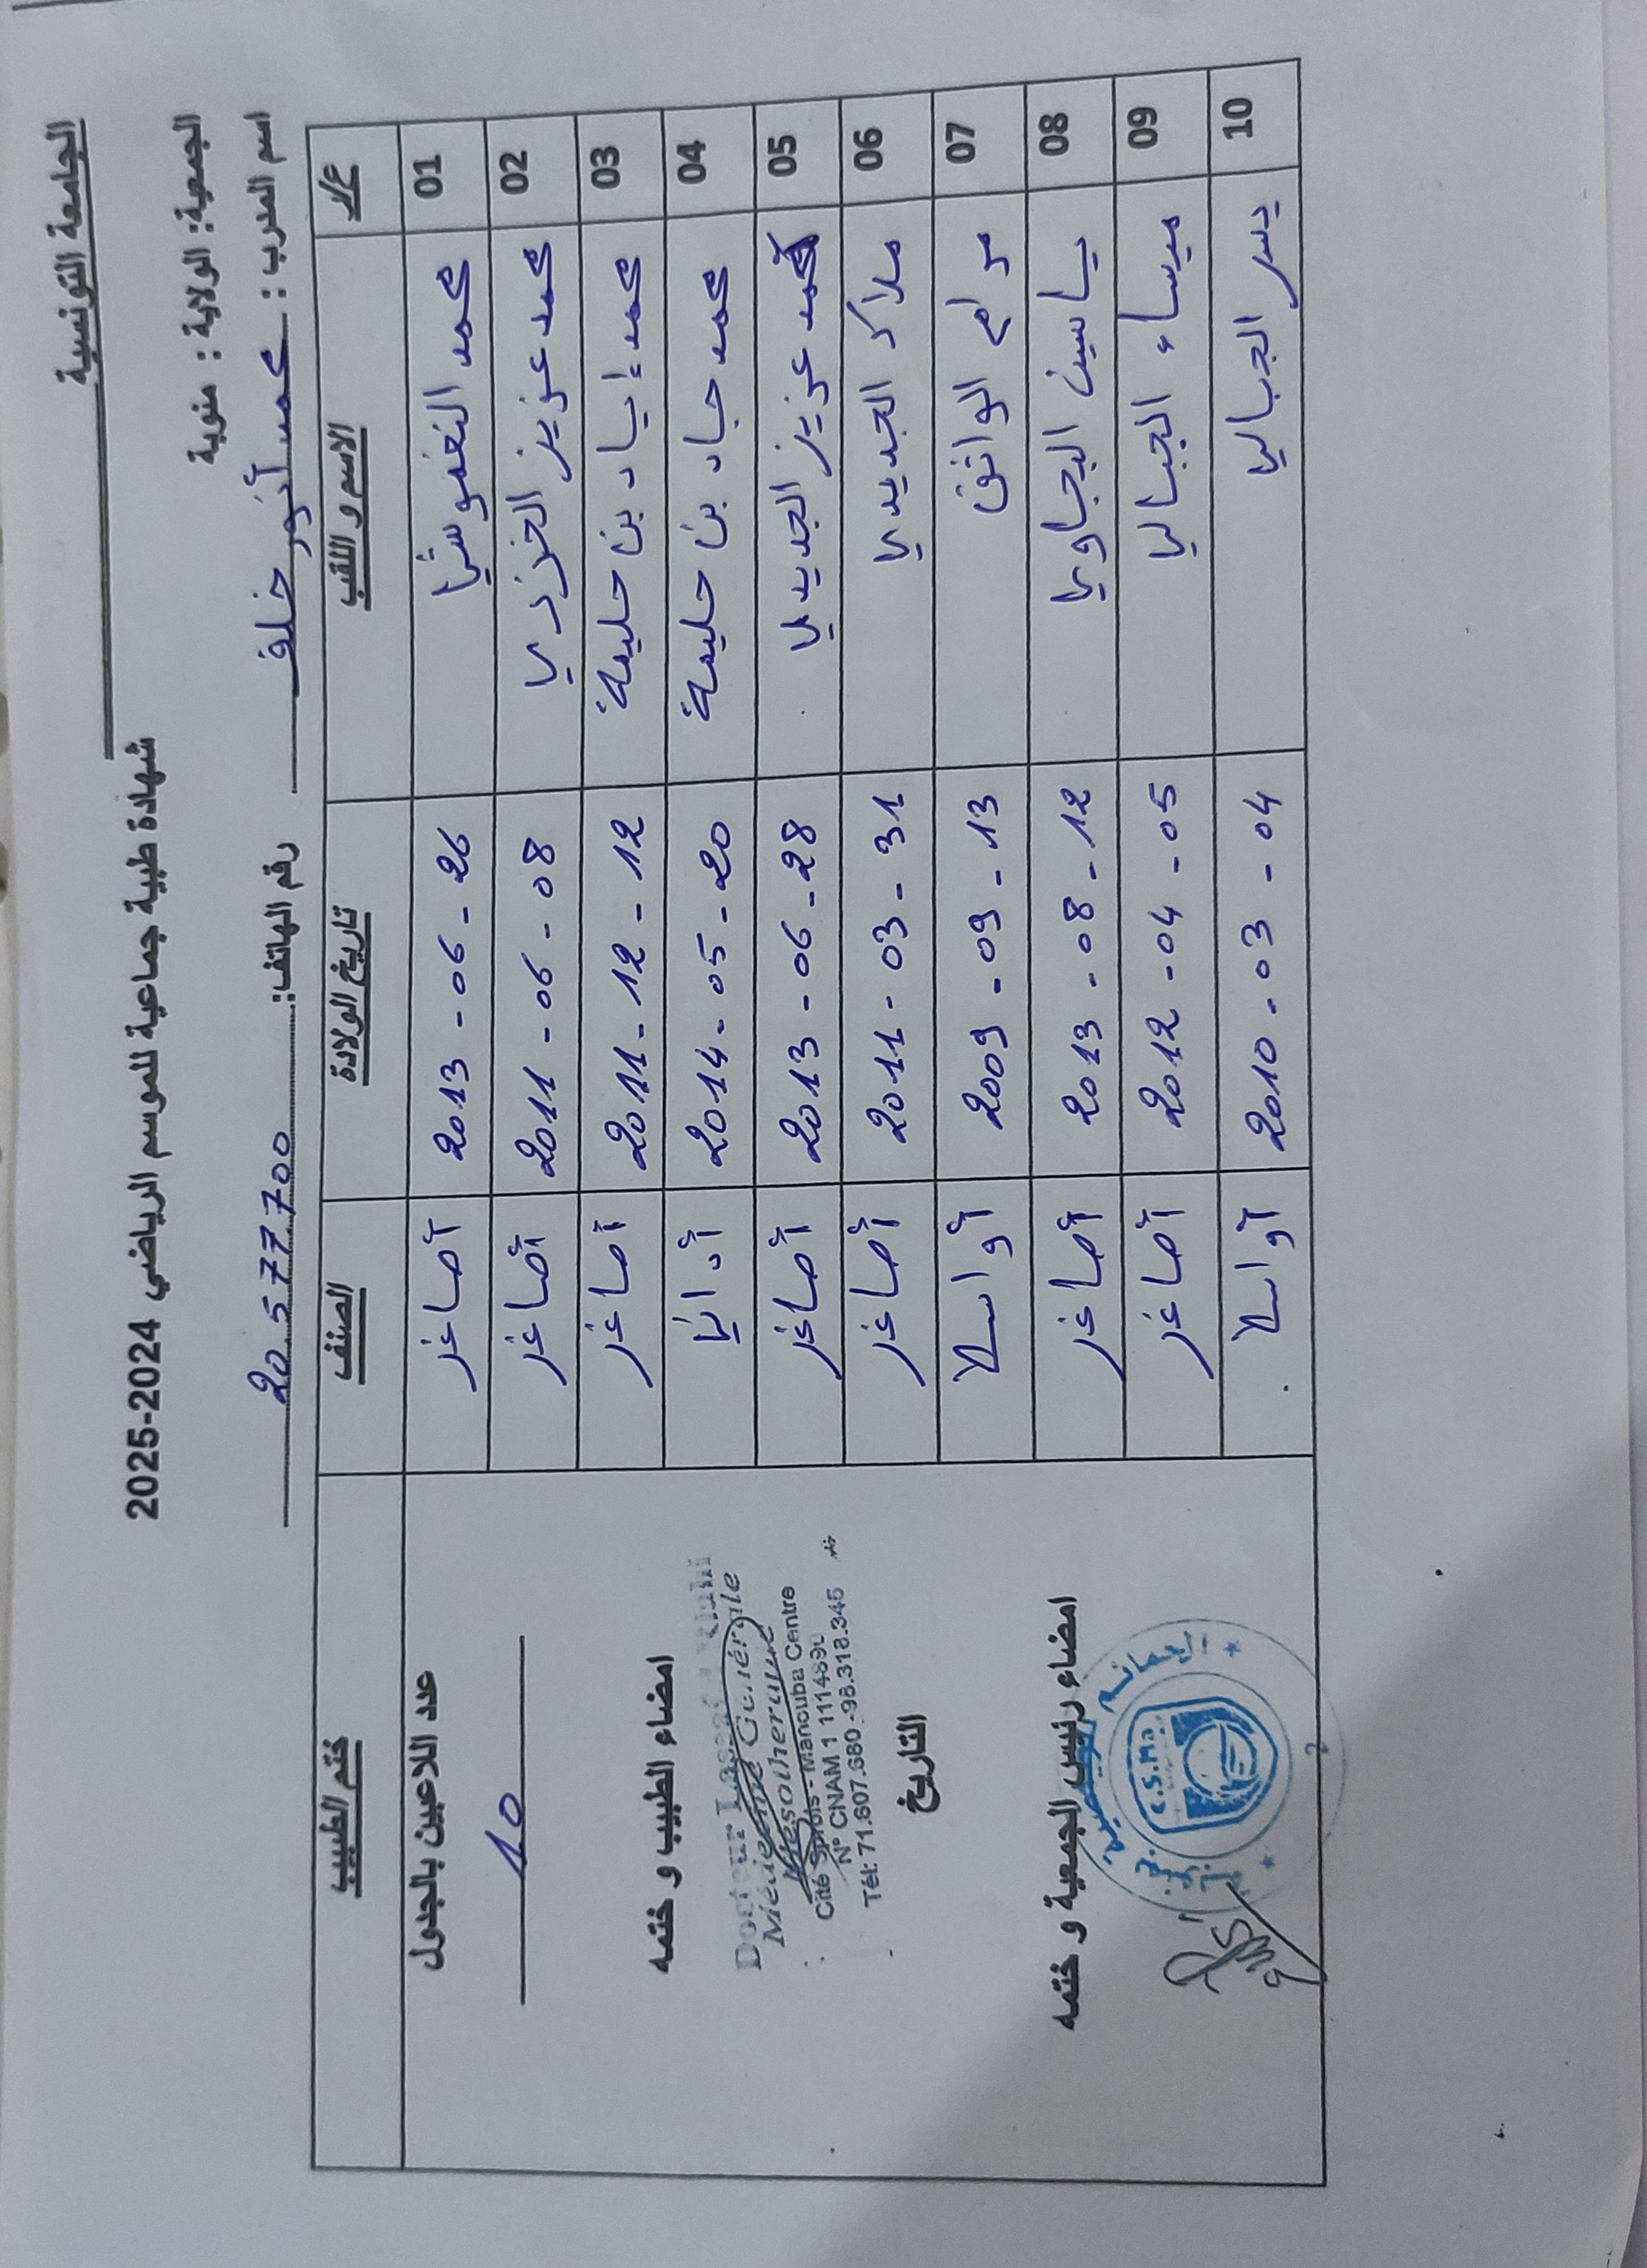 الجامعة التونسية
شهادة طبية جماعية للموسم الرياضي 2024-2025
الجمعية: الولاية : منوبة
اسم المدرب : محمد أنور خلف رقم الهاتف: 20577700
ع/ر الاسم و اللقب تاريخ الولادة الصنف ختم الطبيب
01 محمد النغموشي 2013 - 06 - 26 أصاغر
02 محمد عزيز الخزري 2011 - 06 - 08 أصاغر
03 محمد إياد بن حليمة 2011 - 12 - 12 أصاغر
04 محمد جاد بن حليمة 2014 - 05 - 20 أداني
05 محمد عزيز الجديدي 2013 - 06 - 28 أصاغر
06 ملاك الجديدي 2011 - 03 - 31 أصاغر
07 مرام الواثق 2009 - 09 - 13 أواسط
08 ياسين البجاوي 2013 - 08 - 12 أصاغر
09 ميساء الجبالي 2012 - 04 - 05 أصاغر
10 يسر الجبالي 2010 - 03 - 04 أواسط
عدد اللاعبين بالجدول
10
امضاء الطبيب و ختمه
Docteur
Médecine Générale
Mésothérapie
Cité - Manouba Centre
N° CNAM 1
Tél: 71.607.680 -98.318.345
التاريخ
امضاء رئيس الجمعية و ختمه
C.S.M.D